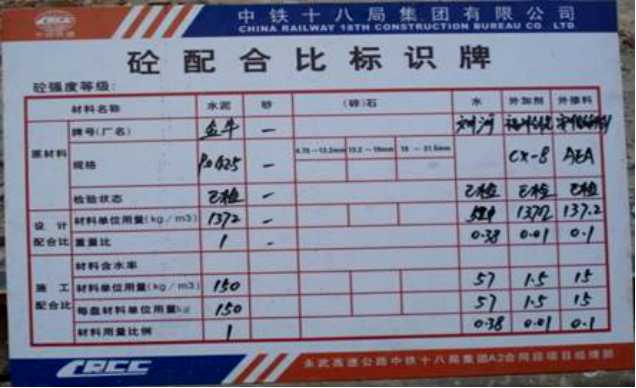 CRCC 中国铁建 中铁十八局集团有限公司
CHINA RAILWAY 18TH CONSTRUCTION BUREAU CO. LTD
砼配合比标识牌
砼强度等级:
材料名称 水泥 砂 (碎)石 水 外加剂 外掺料
原材料 牌号(厂名) 金牛 -
规格 P.O42.5 - 4.75-13.2mm 13.2-19mm 19-31.5mm CX-8 AEA
检验状态 已检 - 已检 已检 已检
设计配合比 材料单位用量(kg/m3) 1372 - 13.72 137.2
重量比 1 - 0.38 0.01 0.1
施工配合比 材料含水率
材料单位用量(kg/m3) 150 57 1.5 15
每盘材料单位用量kg 150 57 1.5 15
材料用量比例 1 0.38 0.01 0.1
CRCC 永武高速公路中铁十八局集团A2合同段项目经理部